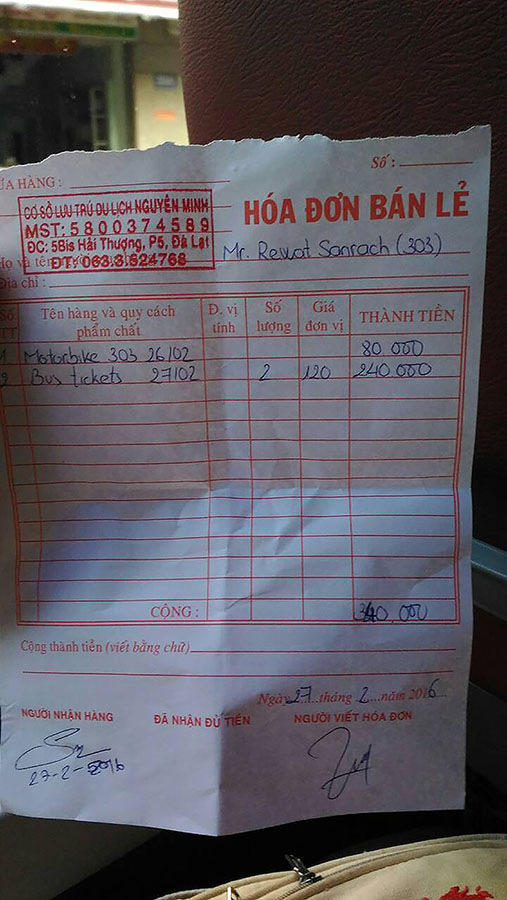 Số :
ỬA HÀNG :
CƠ SỞ LƯU TRÚ DU LỊCH NGUYÊN MINH
MST: 5800374589
ĐC: 5Bis Hải Thượng, P5, Đà Lạt
ĐT: 063.3.524768
HÓA ĐƠN BÁN LẺ
Họ và tên
Mr. Rewat Sanrach (303)
Địa chỉ :
Số TT Tên hàng và quy cách phẩm chất Đ. vị tính Số lượng Giá đơn vị THÀNH TIỀN
1 Motorbike 303 26/02 80.000
2 Bus tickets 27/02 2 120 240.000
CỘNG : 340.000
Cộng thành tiền (viết bằng chữ)
Ngày 27 tháng 2 năm 2016
NGƯỜI NHẬN HÀNG ĐÃ NHẬN ĐỦ TIỀN NGƯỜI VIẾT HÓA ĐƠN
27-2-2016